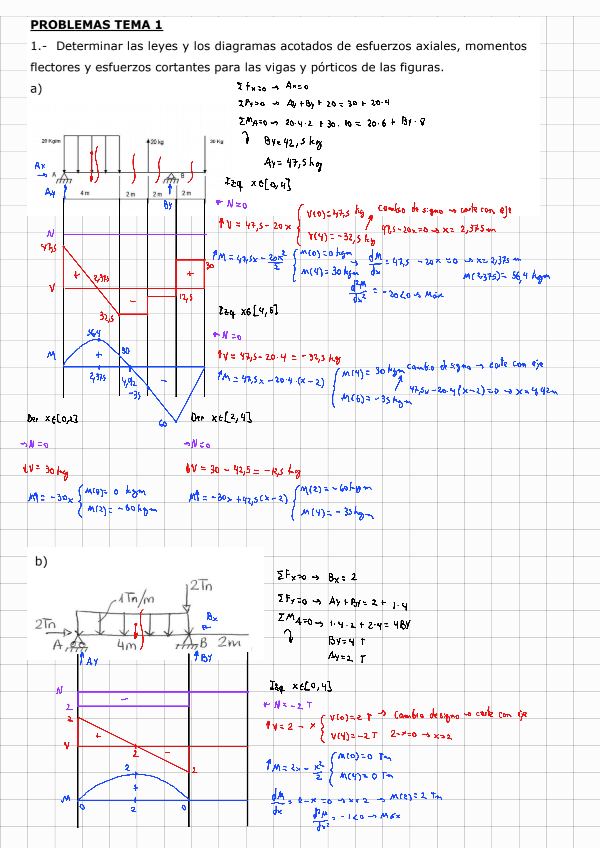 PROBLEMAS TEMA 1
1.- Determinar las leyes y los diagramas acotados de esfuerzos axiales, momentos
flectores y esfuerzos cortantes para las vigas y pórticos de las figuras.
a)
ΣFx=0 → Ax=0
ΣFy=0 → Ay+By+20 = 30+20·4
ΣMA=0 → 20·4·2 + 30·10 = 20·6 + By·8
By=42,5 kg
Ay=47,5 kg
20 Kg/m
20 kg
30 Kg
Ax
A
B
Ay
By
4 m
2 m
2 m
2 m
Izq x∈[0,4]
← N=0
↑V = 47,5 - 20x
V(0)=47,5 kg
V(4)=-32,5 kg
cambio de signo → corte con eje
47,5-20x=0 → x= 2,375m
↑M = 47,5x - 20x²/2
M(0)=0 kgm
M(4)=30 kgm
→ dM/dx = 47,5 - 20x =0 → x=2,375 m
M(2,375)= 56,4 kgm
d²M/dx² = -20<0 → Máx
N
47,5
+
2,375
V
-
32,5
12,5
+
30
Izq x∈[4,6]
← N=0
↑V = 47,5-20·4 = -32,5 kg
↑M = 47,5x - 20·4·(x-2)
M(4)= 30 kgm
M(6)= -35 kgm
cambio de signo → corte con eje
47,5x-20·4(x-2)=0 → x=4,92m
M
56,4
+
2,375
30
4,92
-35
-
60
Der x∈[0,2]
→N=0
↓V= 30 kg
M↑= -30x
M(0)= 0 kgm
M(2)= -60 kgm
Der x∈[2,4]
→N=0
↓V= 30 - 42,5 = -12,5 kg
M↑= -30x+42,5(x-2)
M(2)= -60 kgm
M(4)= -35 kgm
b)
ΣFx=0 → Bx= 2
ΣFy=0 → Ay+By= 2 + 1·4
ΣMA=0 → 1·4·2 + 2·4= 4By
By=4 T
Ay=2 T
2Tn
1Tn/m
2Tn
Bx
A
4m
B
2m
Ay
By
Izq x∈[0,4]
← N=-2 T
↑V = 2 - x
V(0)=2 T
V(4)=-2T
→ Cambio de signo → corte con eje
2-x=0 → x=2
↑M= 2x - x²/2
M(0)=0 Tm
M(4)= 0 Tm
dM/dx = 2-x =0 → x=2 → M(2)= 2 Tm
d²M/dx² = -1<0 → Máx
N
2
-
2
V
+
2
-
2
M
0
2
+
2
0